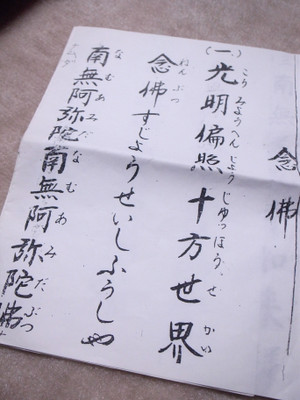 念佛
(一)光明偏照十方世界
こうみようへんじようじゆつほう、せかい
念佛すじようせいしふうしや
ねんぶつ
南無阿弥陀南無阿弥陀佛
なむあみだなむあみだぶつ